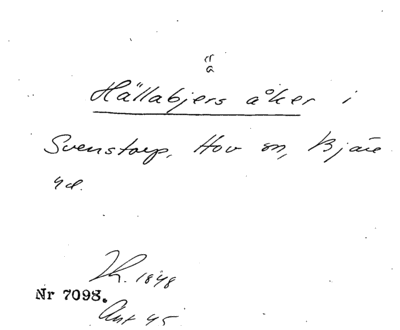 ä
Hällabjers åker i
Svenstorp, Hov sn, Bjäre
hd.
Th. 1848
Nr 7098.
Ant 45